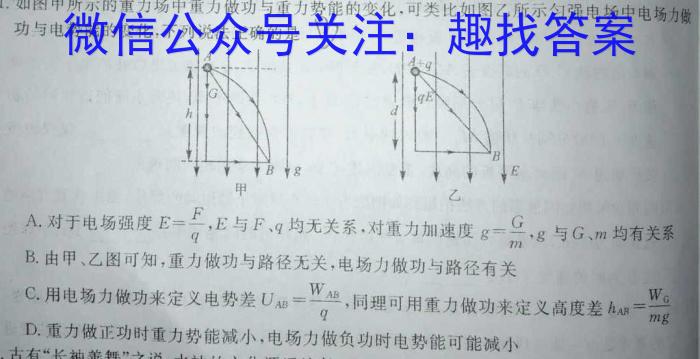 1.如图甲所示的重力场中重力做功与重力势能的变化,可类比如图乙所示匀强电场中电场力做
功与电势能的变化,下列说法正确的是
微信公众号关注：趣找答案
A
G
h
B
g
甲
A +q
qE
d
B
E
乙
A.对于电场强度 E=F/q,E 与 F、q 均无关系,对重力加速度 g=G/m,g 与 G、m 均有关系
B.由甲、乙图可知,重力做功与路径无关,电场力做功与路径有关
C.用电场力做功来定义电势差 U_AB=W_AB/q,同理可用重力做功来定义高度差 h_AB=W_G/mg
D.重力做正功时重力势能减小,电场力做负功时电势能可能减小
.古有“长袖善舞”之说